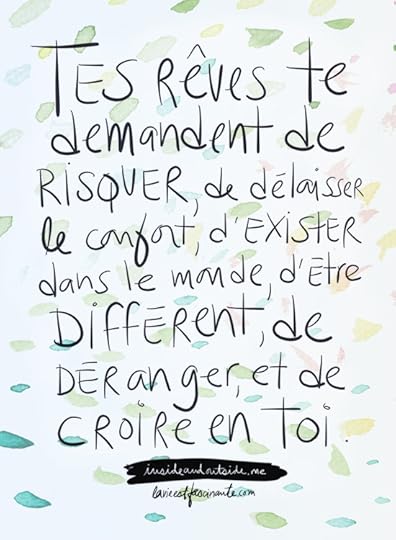 TES RÊVES te
demandent de
RISQUER, de délaisser
le confort, d'EXISTER
dans le monde, d'ÊTRE
DIFFÉRENT, de
DÉRanger, et de
CROIRE en toi.
insideandoutside.me
lavieestfascinante.com